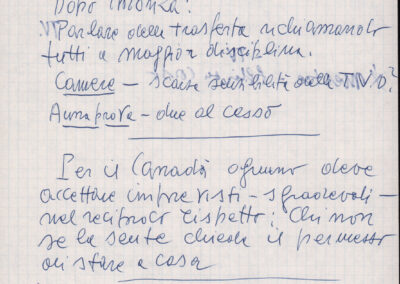 Dopo
Parlare della trasferta richiamando
tutti a maggior disciplina.
Camere – scarsa sensibilità della
prova – due al cesso
Per il Canadà ognuno deve
accettare imprevisti – sgradevoli –
nel reciproco rispetto: Chi non
se la sente chieda il permesso
di stare a casa